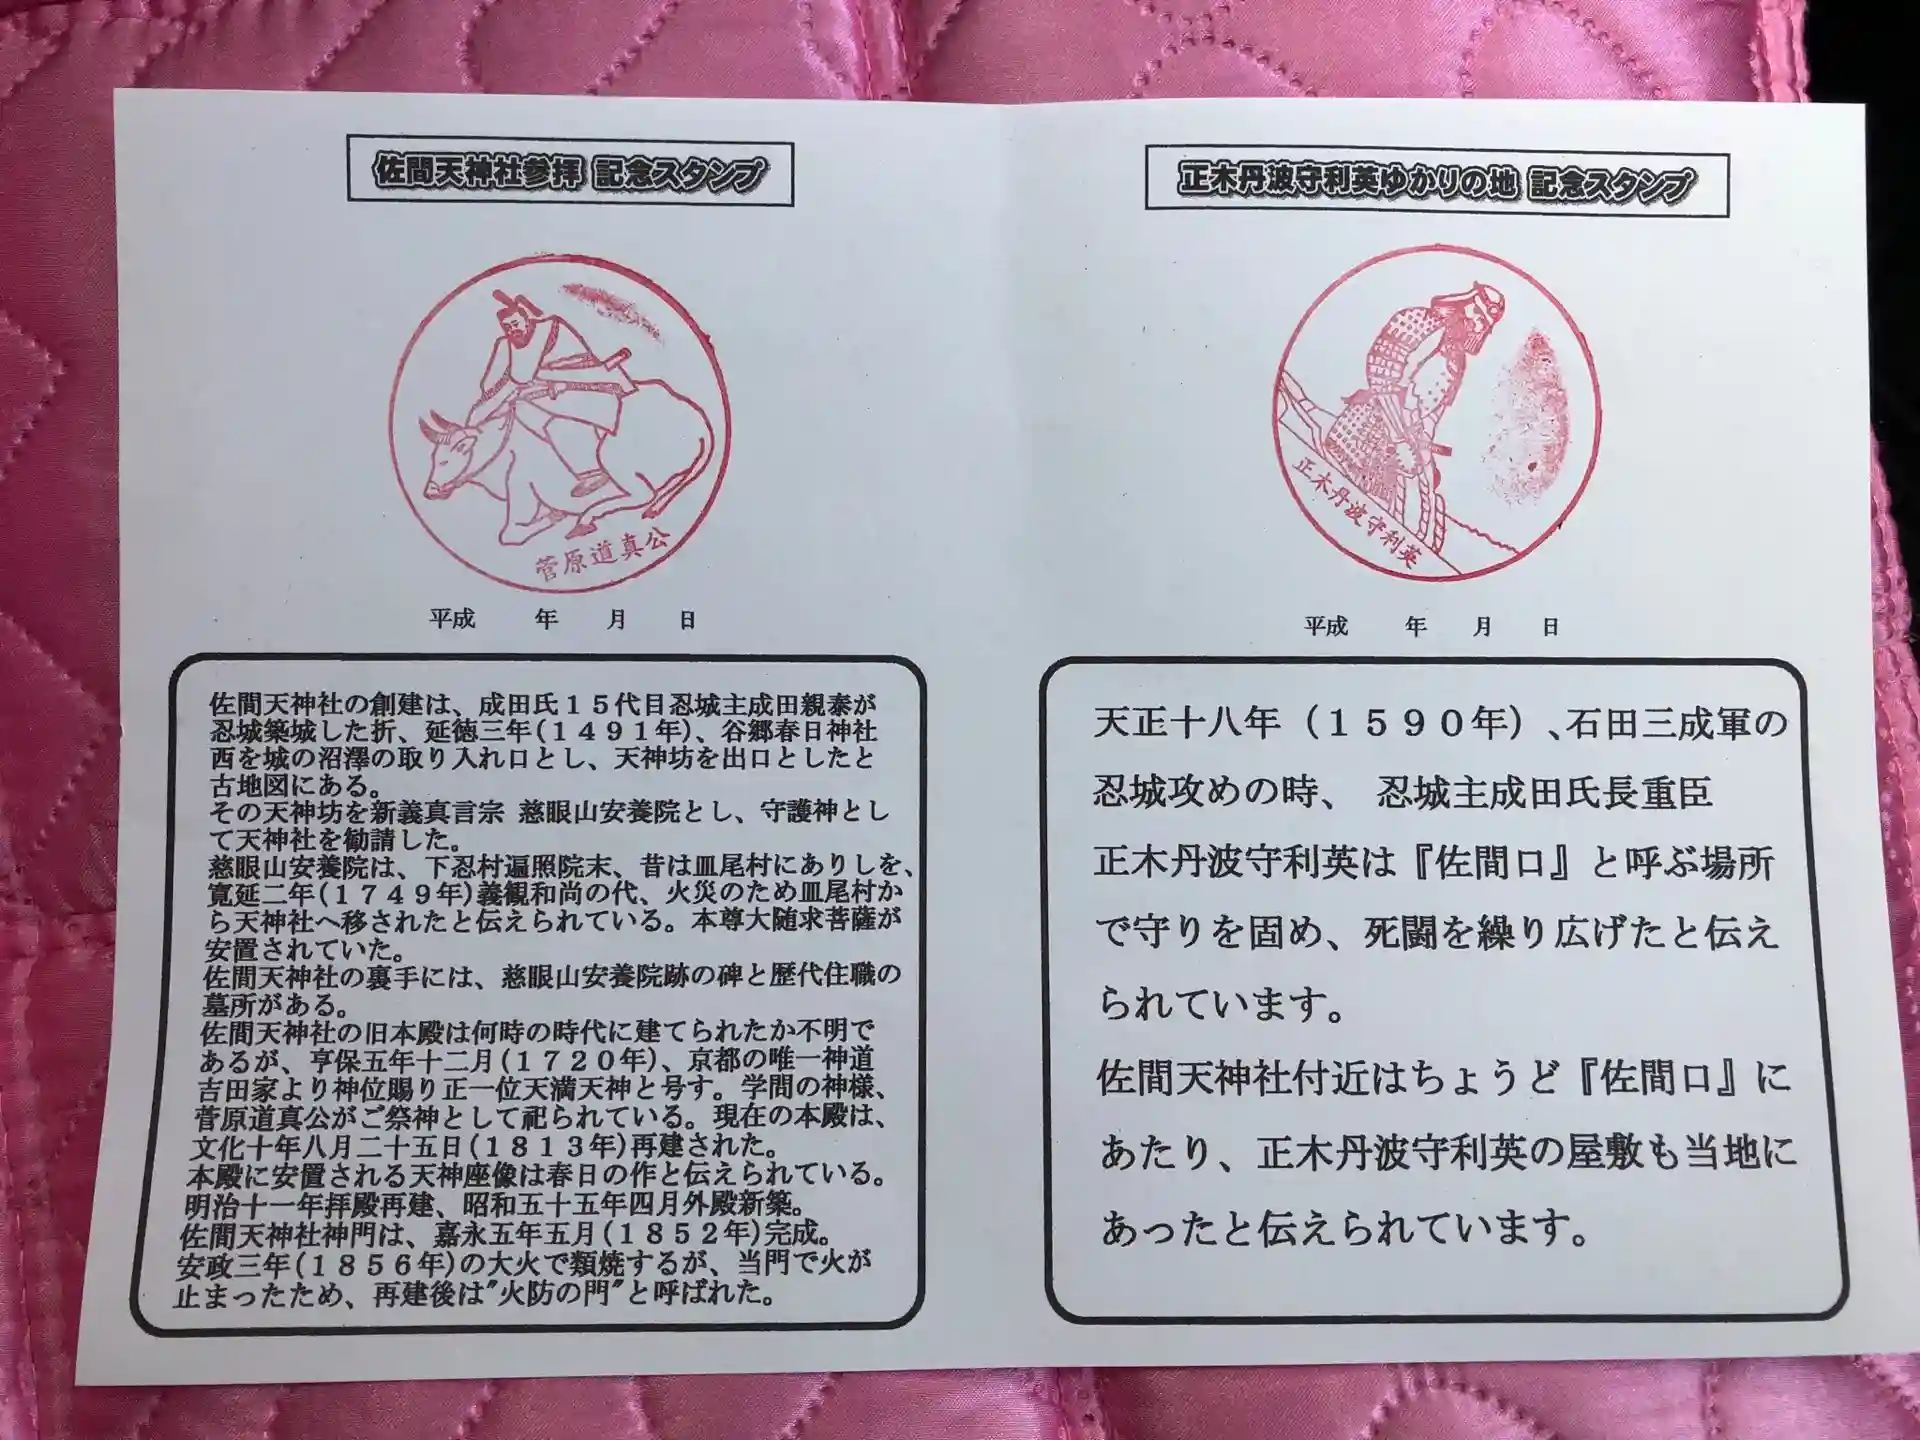 佐間天神社参拝 記念スタンプ
菅原道真公
平成 年 月 日
佐間天神社の創建は、成田氏15代目忍城主成田親泰が
忍城築城した折、延徳三年(1491年)、谷郷春日神社
西を城の沼澤の取り入れ口とし、天神坊を出口としたと
古地図にある。
その天神坊を新義真言宗 慈眼山安養院とし、守護神とし
て天神社を勧請した。
慈眼山安養院は、下忍村遍照院末、昔は皿尾村にありしを、
寛延二年(1749年)義観和尚の代、火災のため皿尾村か
ら天神社へ移されたと伝えられている。本尊大随求菩薩が
安置されていた。
佐間天神社の裏手には、慈眼山安養院跡の碑と歴代住職の
墓所がある。
佐間天神社の旧本殿は何時の時代に建てられたか不明で
あるが、亨保五年十二月(1720年)、京都の唯一神道
吉田家より神位賜り正一位天満天神と号す。学問の神様、
菅原道真公がご祭神として祀られている。現在の本殿は、
文化十年八月二十五日(1813年)再建された。
本殿に安置される天神座像は春日の作と伝えられている。
明治十一年拝殿再建、昭和五十五年四月外殿新築。
佐間天神社神門は、嘉永五年五月(1852年)完成。
安政三年(1856年)の大火で類焼するが、当門で火が
止まったため、再建後は"火防の門"と呼ばれた。
正木丹波守利英ゆかりの地 記念スタンプ
正木丹波守利英
平成 年 月 日
天正十八年（1590年）、石田三成軍の
忍城攻めの時、 忍城主成田氏長重臣
正木丹波守利英は『佐間口』と呼ぶ場所
で守りを固め、死闘を繰り広げたと伝え
られています。
佐間天神社付近はちょうど『佐間口』に
あたり、正木丹波守利英の屋敷も当地に
あったと伝えられています。